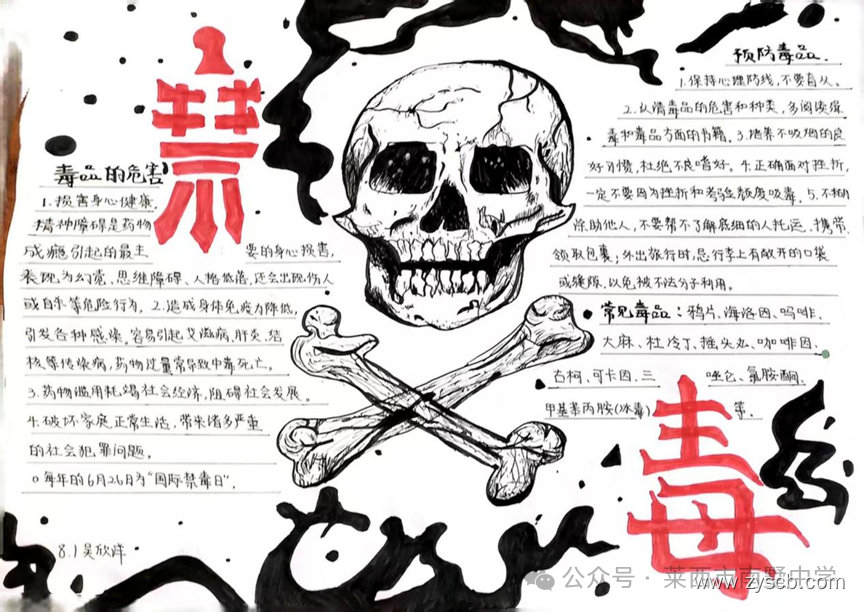 禁
毒品的危害
1.损害身心健康,
精神障碍是药物
成瘾引起的最主 要的身心损害,
表现为幻觉、思维障碍、人格低落,还会出现伤人
或自杀等危险行为。2.造成身体免疫力降低,
引发各种感染,容易引起艾滋病、肝炎、结
核等传染病,药物过量常导致中毒死亡。
3.药物滥用耗竭社会经济,阻碍社会发展。
4.破坏家庭正常生活,带来诸多严重
的社会犯罪问题。
○每年的6月26日为“国际禁毒日”.
8.1吴欣洋
预防毒品.
1.保持心理防线,不要盲从。
2.认清毒品的危害和种类,多阅读
毒和毒品方面的书籍。3.培养不吸烟的良
好习惯,杜绝不良嗜好。4.正确面对挫折,
一定不要因为挫折和考验颓废吸毒。5.不
除助他人,不要帮不了解底细的人托运、携带、
领取包裹;外出旅行时,忌行李上有敞开的口袋
或缝隙,以免被不法分子利用。
常见毒品:鸦片、海洛因、吗啡、
大麻、杜冷丁、摇头丸、咖啡因、
古柯、可卡因、三 唑仑、氯胺酮、
甲基苯丙胺(冰毒) 等.
毒
公众号 · 莱西市南野中学
www.zyscbt.com